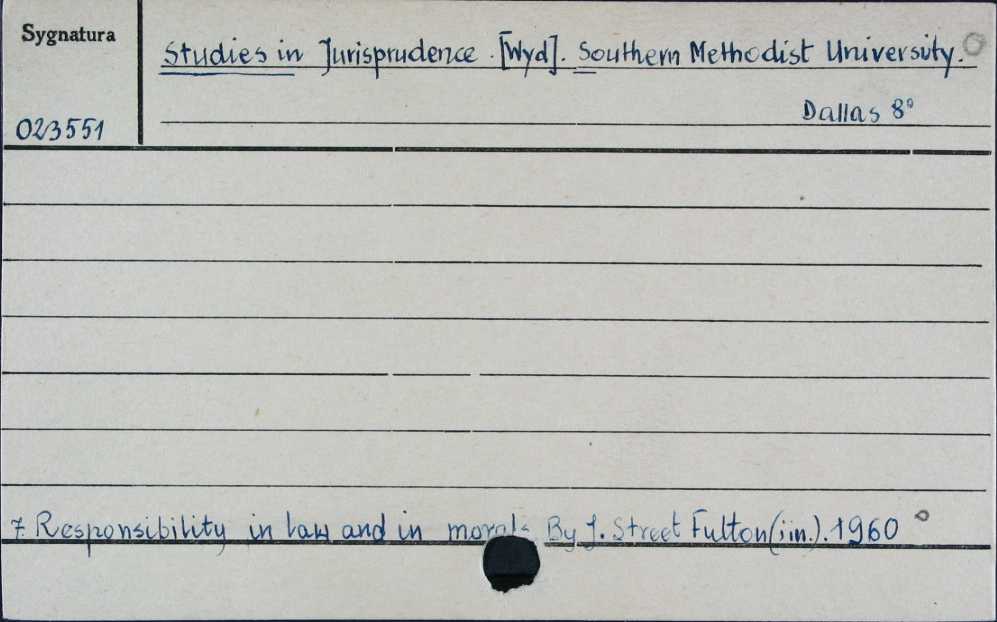 Sygnatura
Studies in Jurisprudence. [Wyd]. Southern Methodist University.
Dallas 8°
023551
7. Responsibility in law and in morals. By J. Street Fulton (i in.). 1960